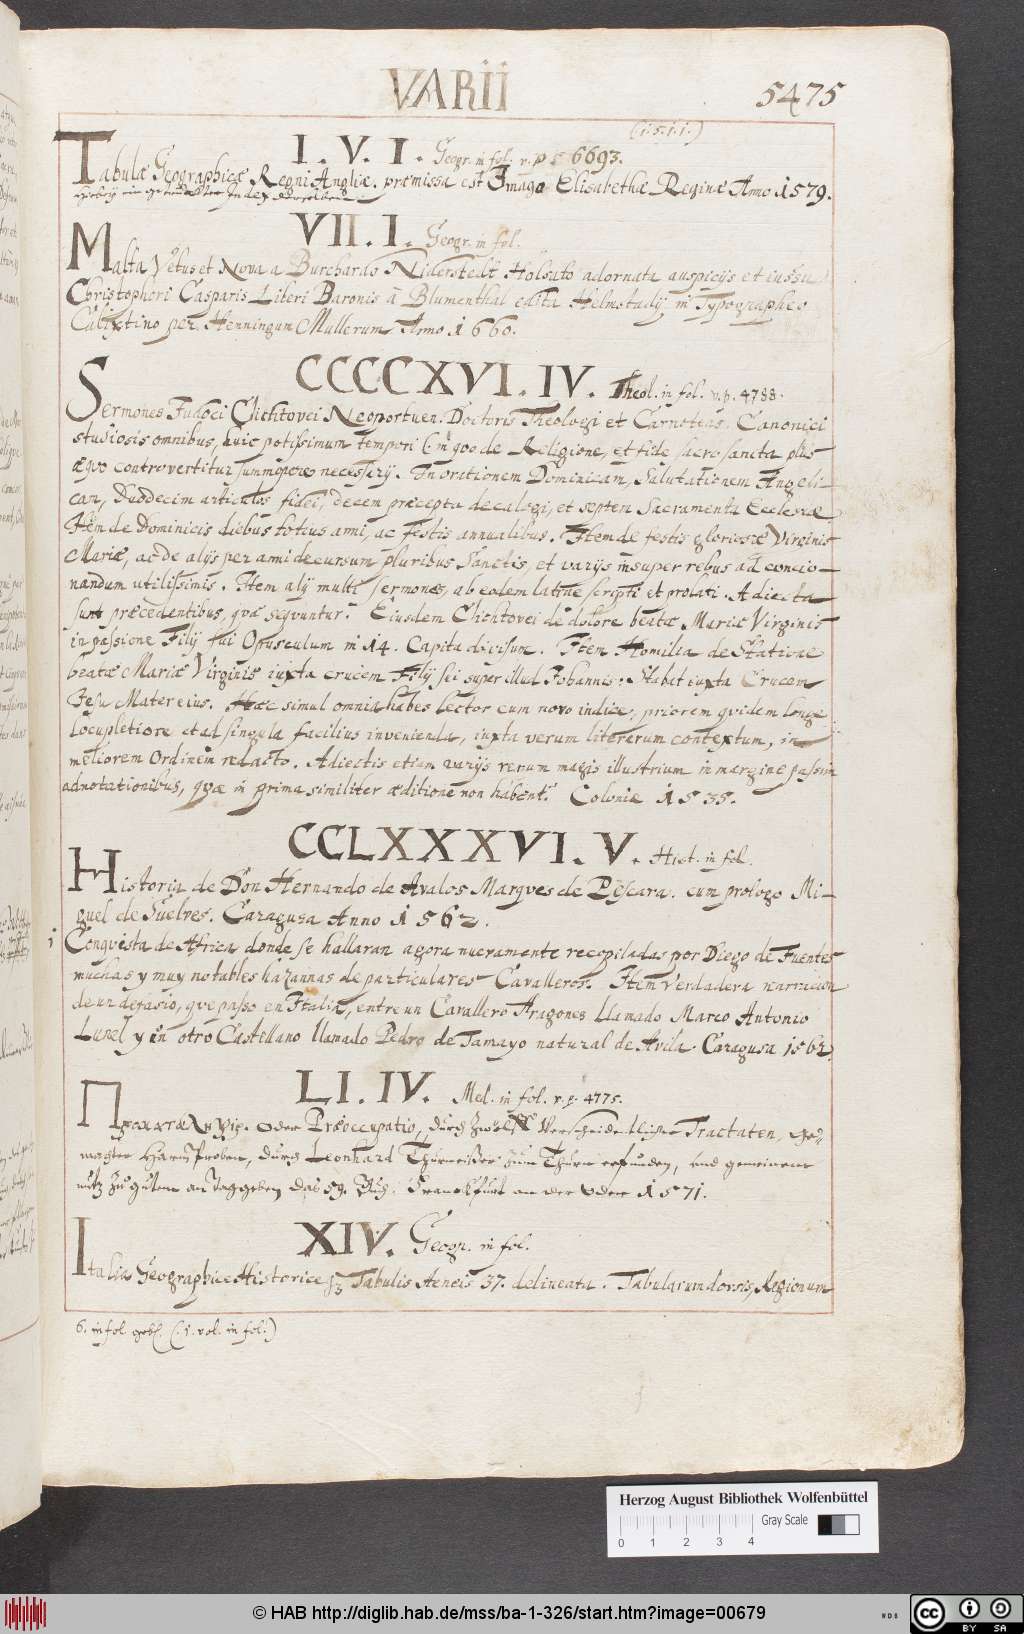 VARII
5475
(1.5.1.1.)
I. V. I. Geogr. in fol. v. p 6693.
Tabulæ Geographicæ Regni Angliæ. præmissa est Imago Elisabethæ Reginæ Anno 1579.
VII. I. Geogr. in fol.
Malta Vetus et Nova a Burchardo Niderstedt Holsato adornata auspicijs et iussu
Christophori Casparis Liberi Baronis â Blumenthal edita Helmstadij in Typographeo
Calixtino per Henningum Mullerum Anno 1660.
CCCCXVI. IV. Theol. in fol. v. p. 4788.
Sermones Judoci Clichtovei Neoportuen. Doctoris Theologi et Carnoteñs. Canonici
studiosis omnibus, huic potissimum tempori (in quo de Religione, et fide sacrosancta plus
æquo controvertitur summopere necessarij. In orationem Dominicam, Salutationem Angeli-
cam, Duodecim articulos fidei, decem precepta decalogi, et septem Sacramenta Ecclesiæ
Item de Dominicis diebus totius anni, ac festis annualibus. Item de festis gloriosæ Virginis
Mariæ, ac de alijs per anni decursum pluribus Sanctis, et varijs insuper rebus ad concio-
nandum utilissimis. Item alij multi sermones, ab eodem latine scripti et prolati. Adiecta
sunt præcedentibus, quæ seqvuntur. Eiusdem Clichtovei de dolore beatæ Mariæ Virginis
in passione Filij sui Opusculum in 14. Capita divisum. Item Homilia de Statione
beatæ Mariæ Virginis iuxta crucem Filij sui super illud Johannis: Stabat iuxta Crucem
Jesu Mater eius. Hæc simul omnia habes lector cum novo indice, priorem qvidem longe
locupletiore et ad singula facilius invenienda, iuxta verum literarum contextum, in
meliorem Ordinem redacto. Adiectis etiam varijs rerum magis illustrium in margine passim
adnotationibus, quæ in prima similiter æditione non habent. Coloniæ 1535.
CCLXXXVI. V. Hist. in fol.
Historia de Don Hernando de Avalos Marques de Pescara. cum prologo Mi-
guel de Suelves. Caragusa Anno 1562.
1 Conqvista de Africa donde se hallaran agora nuevamente recopiladas por Diego de Fuentes
muchas y muy notables hazannas de particulares Cavalleros. Item verdadera narracion
de un desafio, qve passo en Italia, entre un Cavallero Aragones Llamado Marco Antonio
Lunel y un otro Castellano llamado Pedro de Tamayo natural de Avila. Caragusa 1562.
LI. IV. Med. in fol. v. p. 4775.
oder Præoccupatio, durch zwölff verscheidenlicher Tractaten, ge-
machter Harm Proben, durch Leonhard Thurneisser zum Thurn erfunden, und gemeinem
nutz zu gutem an Tag geben das 59. Buch. Franckfurt an der Oder 1571.
XIV. Geogr. in fol.
Italia Geographice Historice Tabulis Aeneis 37. delineata. Tabularum dorsis, Regionum
6. in fol. gebl. (1. vol. in fol:)
Herzog August Bibliothek Wolfenbüttel
Gray Scale
0 1 2 3 4
© HAB http://diglib.hab.de/mss/ba-1-326/start.htm?image=00679
cc BY SA